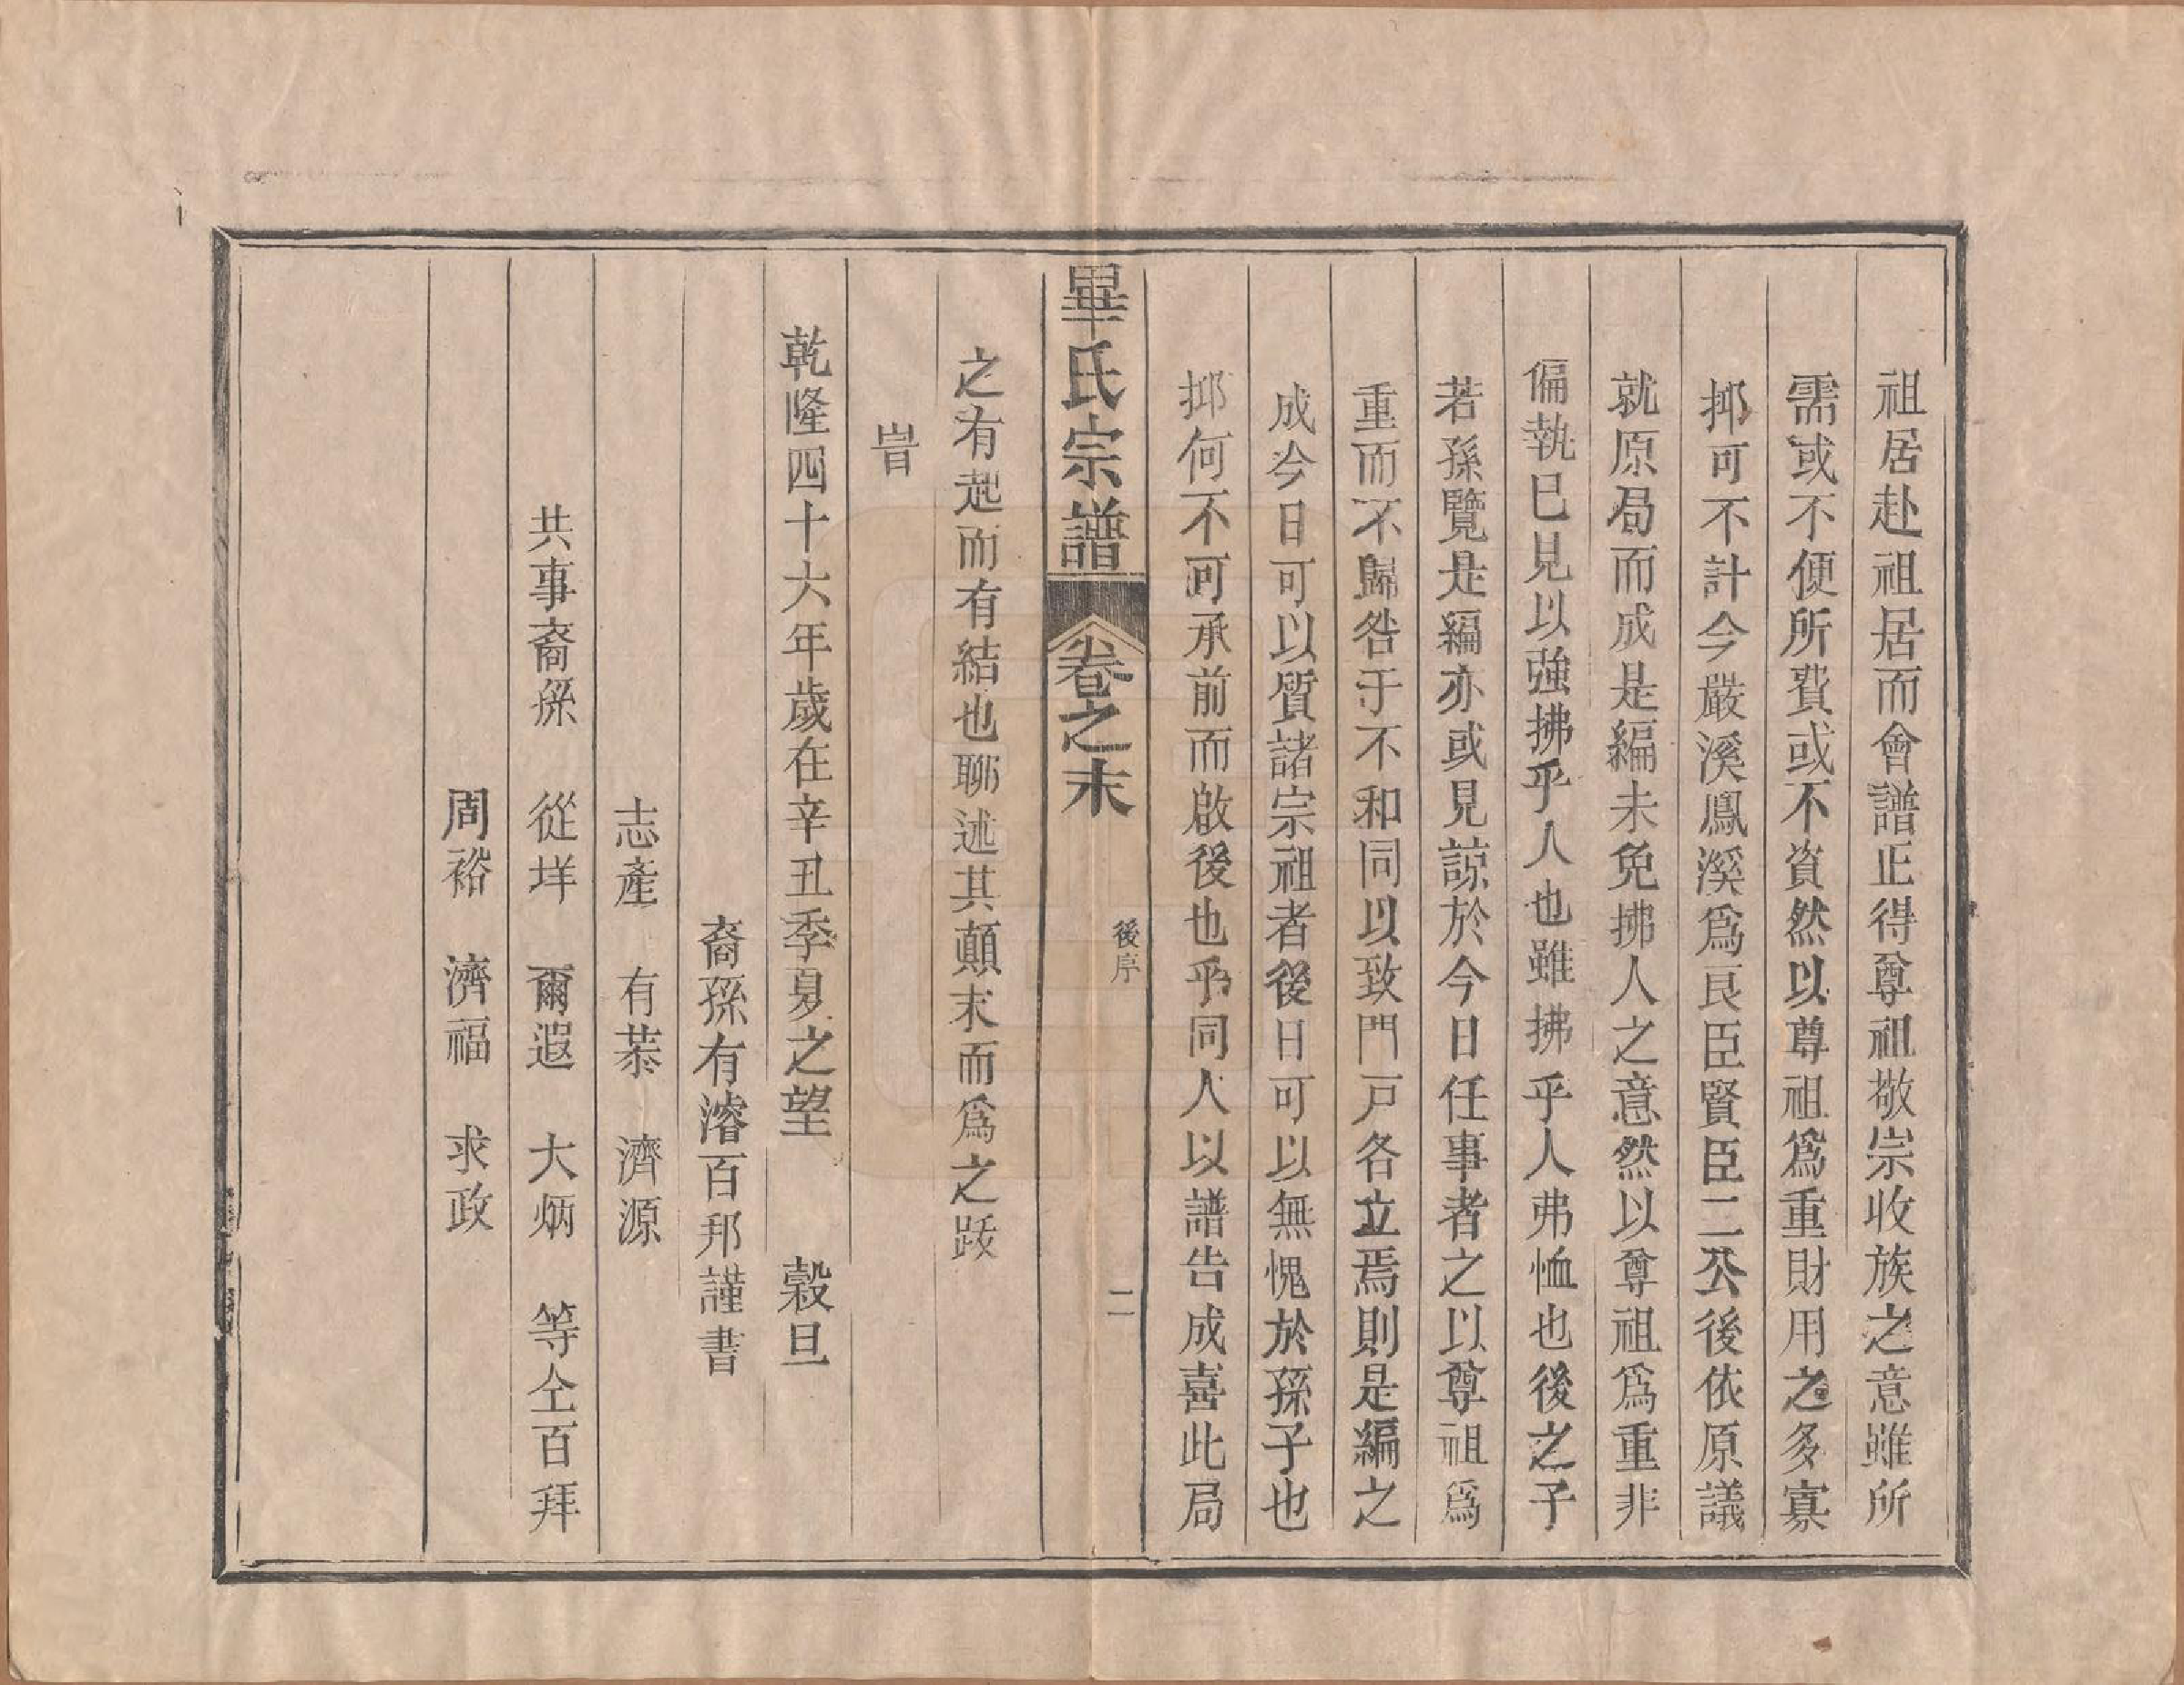 祖居赴祖居而會譜正得尊祖敬宗收族之意雖所
需或不便所費或不資然以尊祖爲重財用之多寡
抑可不計今嚴溪鳳溪爲良臣賢臣二公後依原議
就原局而成是編未免拂人之意然以尊祖爲重非
偏執已見以強拂乎人也雖拂乎人弗恤也後之子
若孫覽是編亦或見諒於今日任事者之以尊祖爲
重而不歸咎于不和同以致門戸各立焉則是編之
成今日可以質諸宗祖者後日可以無愧於孫子也
抑何不可承前而啟後也乎同人以譜告成喜此局
畢氏宗譜 卷之末 後序 二
之有起而有結也聊述其顛末而爲之跋
旹
乾隆四十六年歲在辛丑季夏之望 穀旦
裔孫有濬百邦謹書
志產 有菾 濟源
共事裔孫 從垟 爾遐 大炳 等仝百拜
周裕 濟福 求政